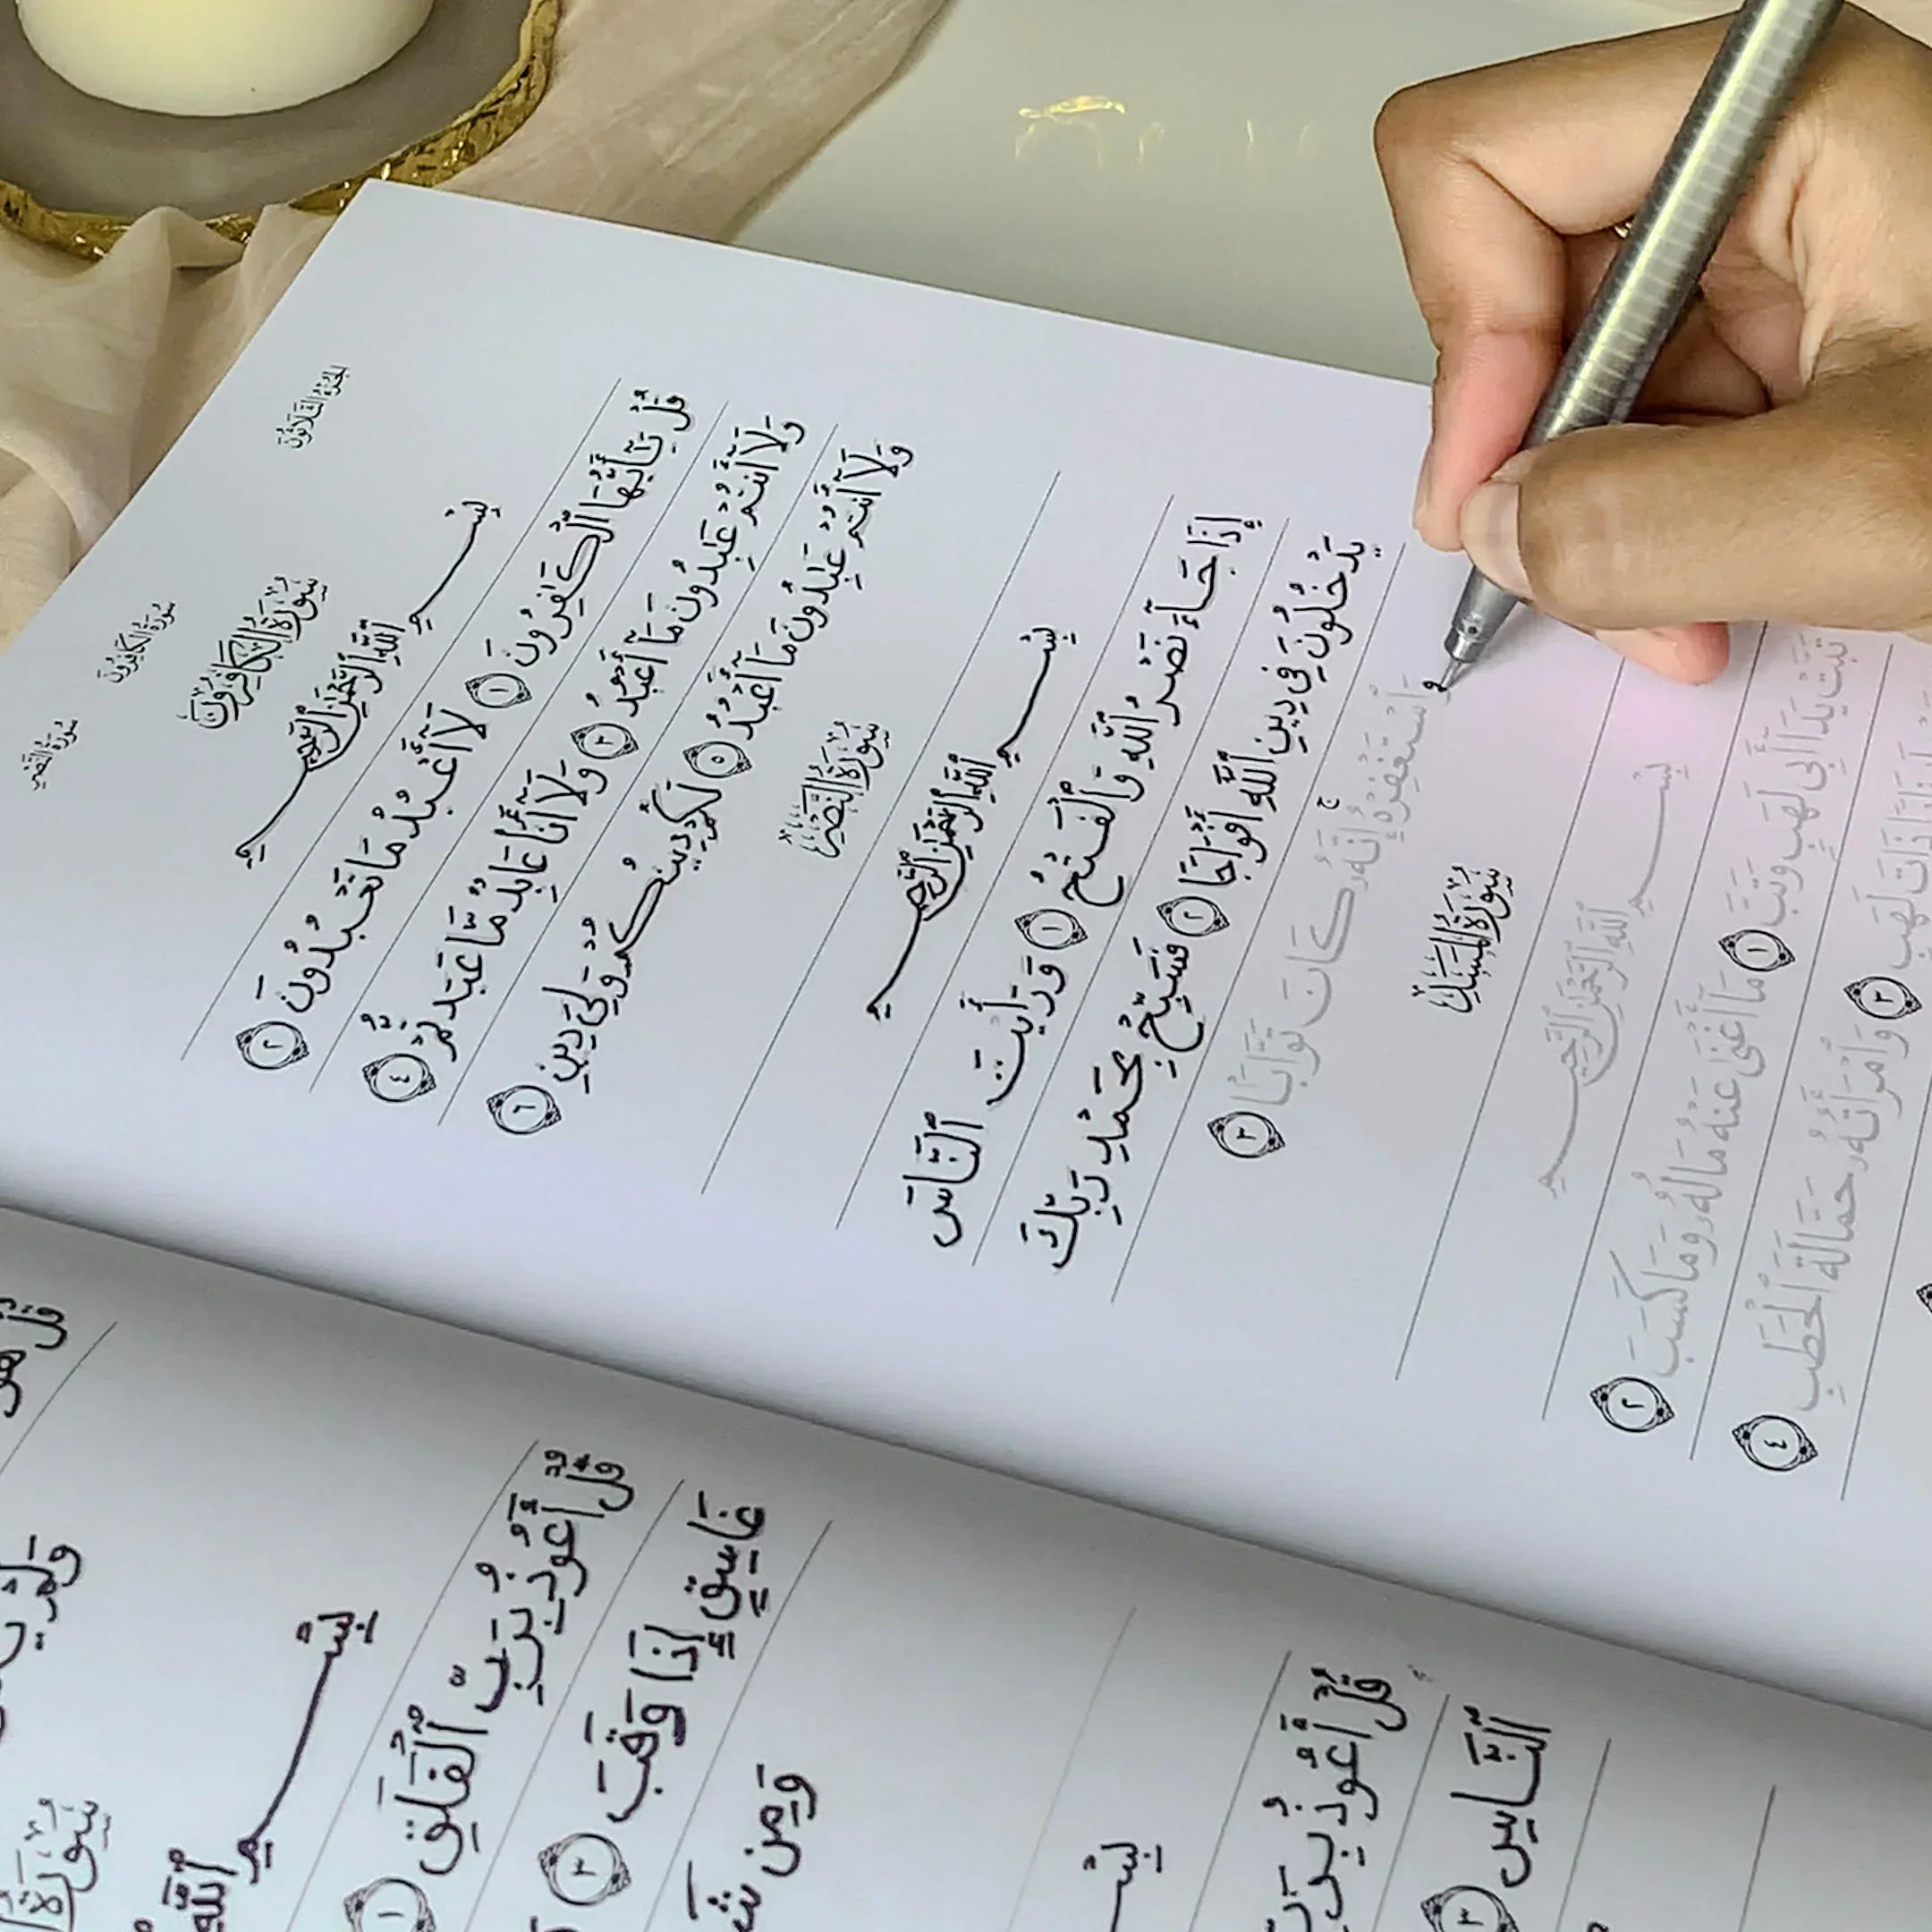 الجزء الثلاثون
سورة الكافرون
سورة النصر
سُورَةُ الكَافِرُونَ
بِسْمِ ٱللَّهِ ٱلرَّحْمَٰنِ ٱلرَّحِيمِ
قُلْ يَٰٓأَيُّهَا ٱلْكَٰفِرُونَ ١ لَآ أَعْبُدُ مَا تَعْبُدُونَ ٢
وَلَآ أَنتُمْ عَٰبِدُونَ مَآ أَعْبُدُ ٣ وَلَآ أَنَا۠ عَابِدٌ مَّا عَبَدتُّمْ ٤
وَلَآ أَنتُمْ عَٰبِدُونَ مَآ أَعْبُدُ ٥ لَكُمْ دِينُكُمْ وَلِيَ دِينِ ٦
سُورَةُ النَّصْرِ
بِسْمِ ٱللَّهِ ٱلرَّحْمَٰنِ ٱلرَّحِيمِ
إِذَا جَآءَ نَصْرُ ٱللَّهِ وَٱلْفَتْحُ ١ وَرَأَيْتَ ٱلنَّاسَ
يَدْخُلُونَ فِي دِينِ ٱللَّهِ أَفْوَاجًا ٢ فَسَبِّحْ بِحَمْدِ رَبِّكَ
وَٱسْتَغْفِرْهُ ۚ إِنَّهُۥ كَانَ تَوَّابًۢا ٣
سُورَةُ المَسَدِ
بِسْمِ ٱللَّهِ ٱلرَّحْمَٰنِ ٱلرَّحِيمِ
تَبَّتْ يَدَآ أَبِي لَهَبٍ وَتَبَّ ١ مَآ أَغْنَىٰ عَنْهُ مَالُهُۥ وَمَا كَسَبَ ٢
نَارًا ذَاتَ لَهَبٍ ٣ وَٱمْرَأَتُهُۥ حَمَّالَةَ ٱلْحَطَبِ ٤
قُلْ هُوَ
وَلَمْ
سُورَةُ
بِسْمِ ٱللَّهِ
قُلْ أَعُوذُ بِرَبِّ ٱلْفَلَقِ ١
غَاسِقٍ إِذَا وَقَبَ ٣
وَمِن شَ
بِسْمِ
قُلْ أَعُوذُ بِرَبِّ
ٱلنَّاسِ ٣